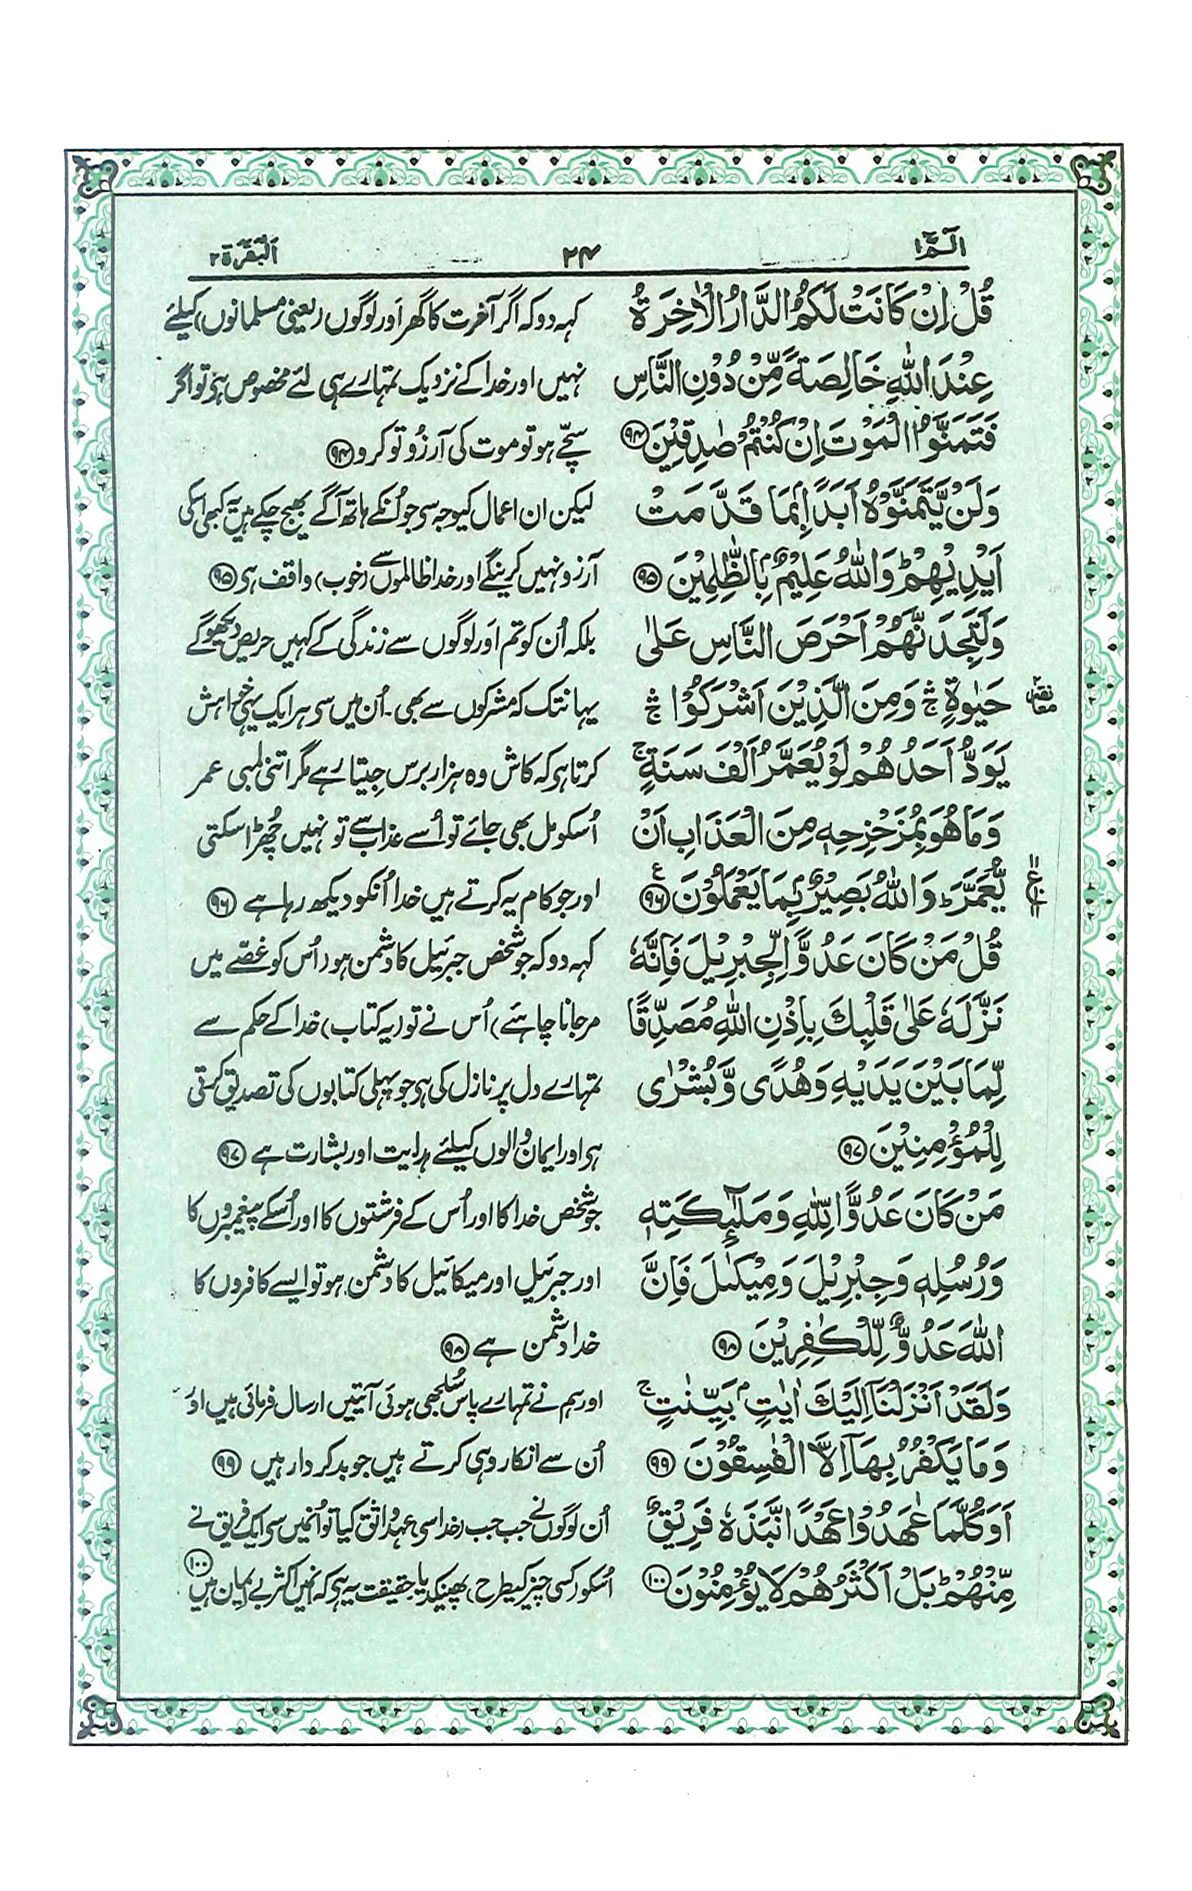 الٓمّٓ ۱
۲۴
اَلْبَقَرَة ۲
قُلْ اِنْ كَانَتْ لَكُمُ الدَّارُ الْاٰخِرَةُ
عِنْدَ اللّٰهِ خَالِصَةً مِّنْ دُوْنِ النَّاسِ
فَتَمَنَّوُا الْمَوْتَ اِنْ كُنْتُمْ صٰدِقِيْنَ ۹۴
وَلَنْ يَّتَمَنَّوْهُ اَبَدًۢا بِمَا قَدَّمَتْ
اَيْدِيْهِمْ ؕ وَاللّٰهُ عَلِيْمٌۢ بِالظّٰلِمِيْنَ ۹۵
وَلَتَجِدَنَّهُمْ اَحْرَصَ النَّاسِ عَلٰى
حَيٰوةٍ ۛۚ وَمِنَ الَّذِيْنَ اَشْرَكُوْا ۛۚ
يَوَدُّ اَحَدُهُمْ لَوْ يُعَمَّرُ اَلْفَ سَنَةٍ ۚ
وَمَا هُوَ بِمُزَحْزِحِهٖ مِنَ الْعَذَابِ اَنْ
يُّعَمَّرَ ؕ وَاللّٰهُ بَصِيْرٌۢ بِمَا يَعْمَلُوْنَ ۹۶ ع
قُلْ مَنْ كَانَ عَدُوًّا لِّجِبْرِيْلَ فَاِنَّهٗ
نَزَّلَهٗ عَلٰى قَلْبِكَ بِاِذْنِ اللّٰهِ مُصَدِّقًا
لِّمَا بَيْنَ يَدَيْهِ وَهُدًى وَّبُشْرٰى
لِلْمُؤْمِنِيْنَ ۹۷
مَنْ كَانَ عَدُوًّا لِّلّٰهِ وَمَلٰٓئِكَتِهٖ
وَرُسُلِهٖ وَجِبْرِيْلَ وَمِيْكٰىلَ فَاِنَّ
اللّٰهَ عَدُوٌّ لِّلْكٰفِرِيْنَ ۹۸
وَلَقَدْ اَنْزَلْنَاۤ اِلَيْكَ اٰيٰتٍۢ بَيِّنٰتٍ ۚ
وَمَا يَكْفُرُ بِهَاۤ اِلَّا الْفٰسِقُوْنَ ۹۹
اَوَكُلَّمَا عٰهَدُوْا عَهْدًا نَّبَذَهٗ فَرِيْقٌ
مِّنْهُمْ ؕ بَلْ اَكْثَرُهُمْ لَا يُؤْمِنُوْنَ ۱۰۰
کہہ دو کہ اگر آخرت کا گھر اَور لوگوں (یعنی مسلمانوں) کیلئے
نہیں اور خدا کے نزدیک تمہارے ہی لئے مخصوص ہی تو اگر
سچے ہو تو موت کی آرزُو تو کرو ۹۴
لیکن ان اعمال کیوجہ سی جو اُنکے ہاتھ آگے بھیج چکے ہیں یہ کبھی اسکی
آرزو نہیں کرینگے اور خدا ظالموں سے (خوب) واقف ہی ۹۵
بلکہ اُن کو تم اَور لوگوں سے زندگی کے کہیں حریص دیکھوگے
یہانتک کہ مشرکوں سے بھی۔ اُن میں سی ہر ایک یہی خواہش
کرتا ہی کہ کاش وہ ہزار برس جِیتا رہے مگر اتنی لمبی عمر
اُسکو مل بھی جائے تو اُسے عذاب سے تو نہیں چُھڑا سکتی
اور جو کام یہ کرتے ہیں خدا اُنکو دیکھ رہا ہے ۹۶
کہہ دو کہ جو شخص جبرئیل کا دشمن ہو (اُس کو غصّے میں
مرجانا چاہئے) اُس نے تو (یہ کتاب) خدا کے حکم سے
تمہارے دل پر نازل کی ہی جو پہلی کتابوں کی تصدیق کرتی
ہی اور ایمان والوں کیلئے ہدایت اور بشارت ہے ۹۷
جو شخص خدا کا اور اُس کے فرشتوں کا اور اُسکے پیغمبروں کا
اور جبرئیل اور میکائیل کا دشمن ہو تو ایسے کافروں کا
خدا دشمن ہے ۹۸
اور ہم نے تمہارے پاس سُلجھی ہوئی آیتیں ارسال فرمائی ہیں اور
اُن سے انکار وہی کرتے ہیں جو بدکردار ہیں ۹۹
اُن لوگوں نے جب جب (خدا سی) عہد واثق کیا تو اُنمیں سی ایک فریق نے
اُسکو (کسی چیز کیطرح) پھینک دیا حقیقت یہ ہی کہ انمیں اکثر بے ایمان ہیں ۱۰۰